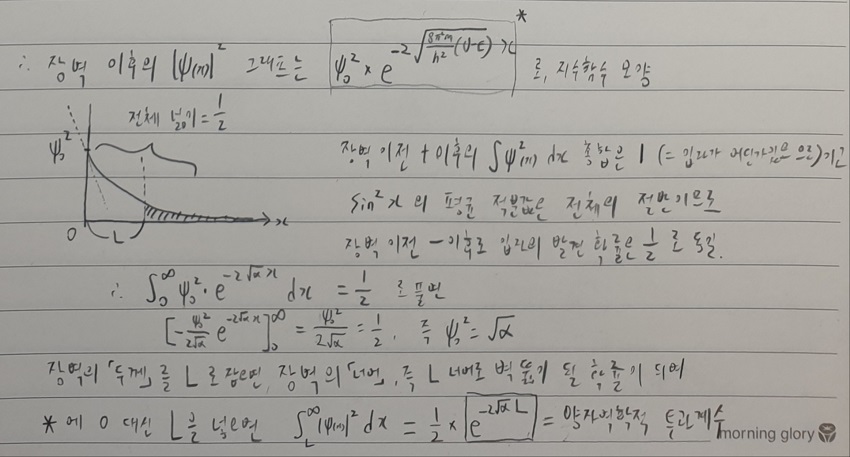 ∴ 장벽 이후의 |ψ(x)|² 그래프는 ψ₀² × e^(-2√(8π²m/h² (U-E)) x) * 로, 지수함수 모양
전체 넓이 = 1/2
ψ₀²
0 L x
장벽 이전 + 이후의 ∫ψ²(x) dx 총합은 1 (= 입자가 어딘가 있음 으로)이고
sin²x 의 평균 적분값은 전체의 절반이므로
장벽 이전 - 이후로 입자의 발견 확률은 1/2 로 동일.
∴ ∫₀^∞ ψ₀² · e^(-2√α x) dx = 1/2 로 풀면
[-ψ₀²/2√α e^(-2√α x)]₀^∞ = ψ₀²/2√α = 1/2, 즉 ψ₀² = √α
장벽의 「두께」를 L로 잡으면, 장벽의 「너머」, 즉 L 너머로 벽 뚫기 될 확률이 되며
* 에 0 대신 L을 넣으면 ∫_L^∞ |ψ(x)|² dx = 1/2 × e^(-2√α L) = 양자역학적 투과계수
morning glory